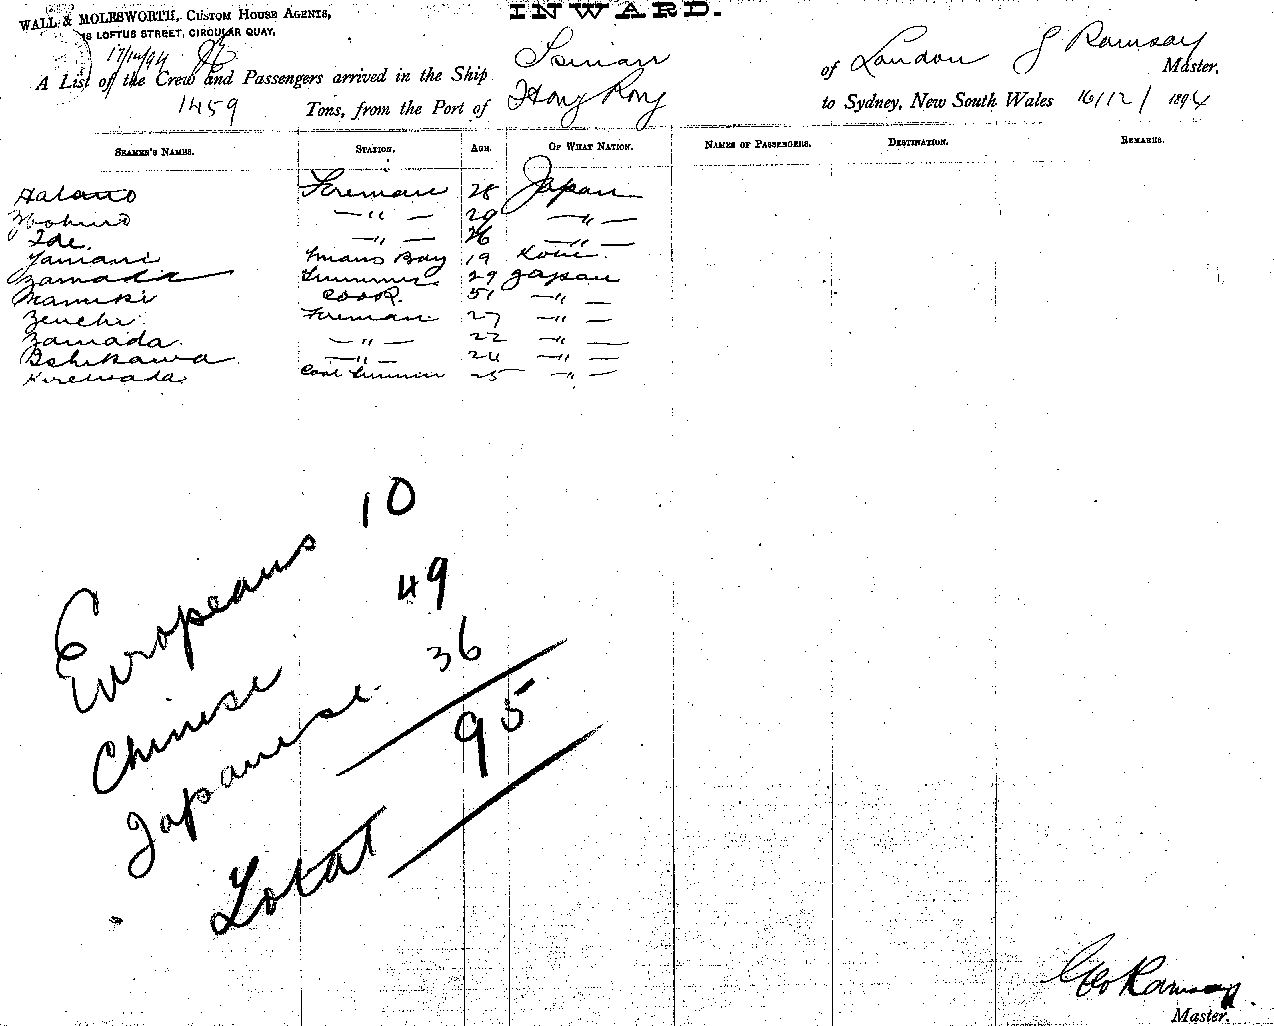 INWARD.
WALL & MOLESWORTH, CUSTOM HOUSE AGENTS,
18 LOFTUS STREET, CIRCULAR QUAY,
17/12/94
A List of the Crew and Passengers arrived in the Ship Tsinan of London G Ramsay Master,
1459 Tons, from the Port of Hong Kong to Sydney, New South Wales 16/12/1894
SEAMEN'S NAMES. STATION. AGE. OF WHAT NATION. NAMES OF PASSENGERS. DESTINATION. REMARKS.
Fireman 28 Japan
—"— 29 —"—
Ide. —"— 26 —"—
Yamani Mess Boy 19
Yamada Trimmer 29 Japan
Cook. 51 —"—
Zenchi Fireman 27 —"—
Yamada. —"— 22 —"—
—"— 24 —"—
Coal Trimmer 25 —"—
Europeans 10
Chinese 49
Japanese 36
Total 95
Geo Ramsay
Master.